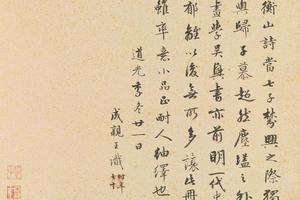 衡山詩當七子蔚興之際獨
與歸子慕超然塵壒之外
畫學吳興書亦前明一代中
郁離以後無所多讓此冊
雖率意小品正耐人紬繹也
道光季冬廿一日
成親王識